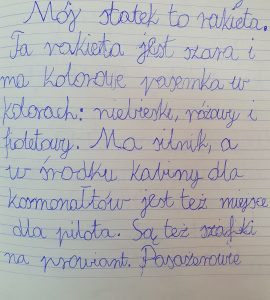 Mój statek to rakieta.
Ta rakieta jest szara i
ma kolorowe pasemka w
kolorach: niebieski, różowy i
fioletowy. Ma silnik, a
w środku kabiny dla
kosmonałtów jest też miejsce
dla pilota. Są też szafki
na prowiant. Pasażerowie